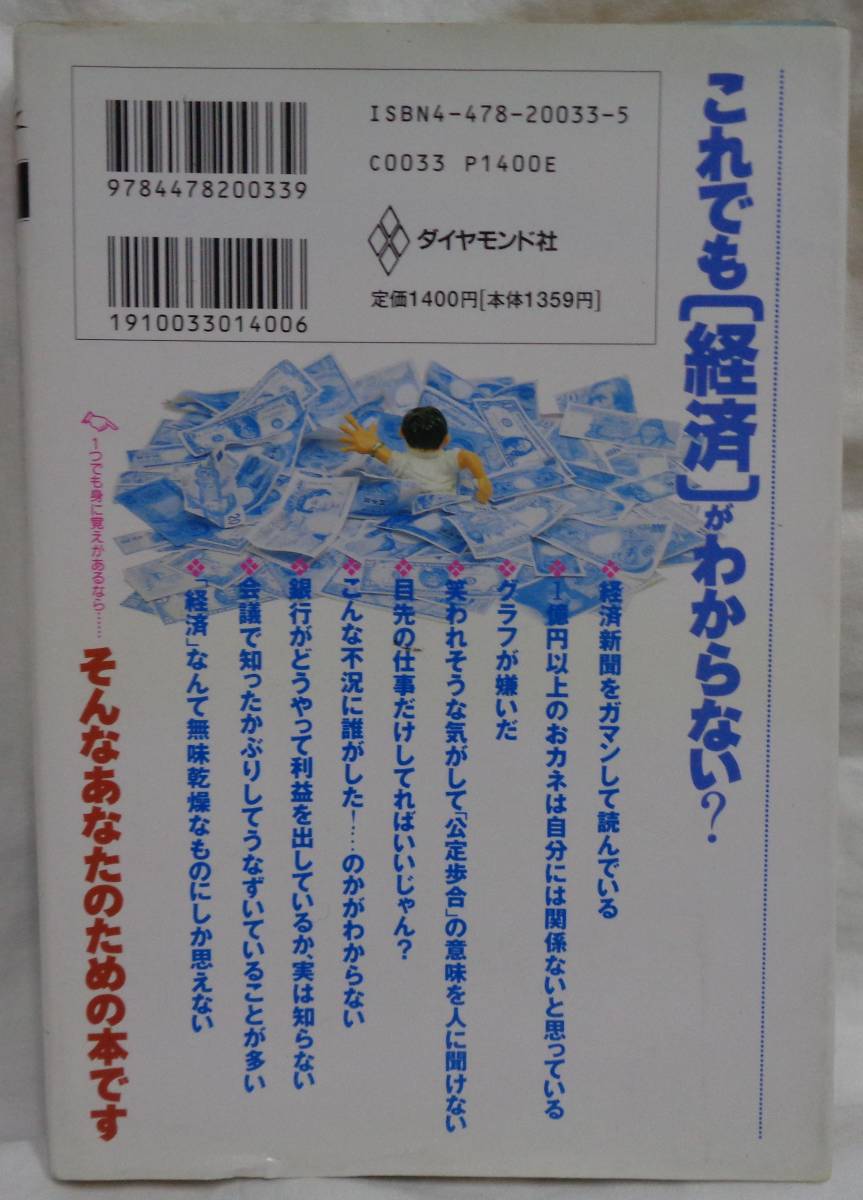 これでも【経済】がわからない?
ISBN4-478-20033-5
C0033 P1400E
ダイヤモンド社
定価1400円[本体1359円]
9784478200339
1910033014006
経済新聞をガマンして読んでいる
1億円以上のおカネは自分には関係ないと思っている
グラフが嫌いだ
笑われそうな気がして「公定歩合」の意味を人に聞けない
目先の仕事だけしてればいいじゃん?
こんな不況に誰がした!…のかがわからない
銀行がどうやって利益を出しているか、実は知らない
会議で知ったかぶりしてうなずいていることが多い
「経済」なんて無味乾燥なものにしか思えない
1つでも身に覚えがあるなら……
そんなあなたのための本です